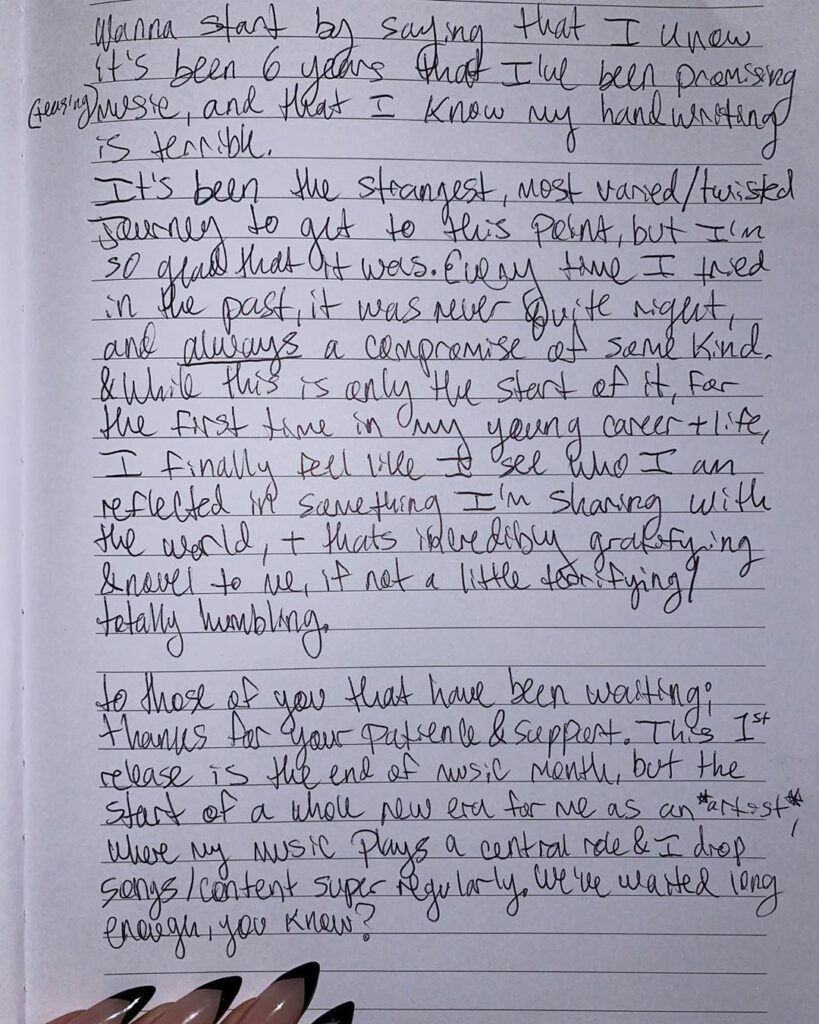 Wanna start by saying that I know
it's been 6 years that I've been promising
(teasing) music, and that I know my handwriting
is terrible.
It's been the strangest, most varied/twisted
journey to get to this point, but I'm
so glad that it was. Every time I tried
in the past, it was never quite right,
and always a compromise of some kind.
& while this is only the start of it, for
the first time in my young career + life,
I finally feel like I see who I am
reflected in something I'm sharing with
the world, + thats incredibly gratifying
& novel to me, if not a little terrifying/
totally humbling.
to those of you that have been waiting;
thanks for your patience & support. This 1st
release is the end of music month, but the
start of a whole new era for me as an *artist*,
where my music plays a central role & I drop
songs/content super regularly. We've waited long
enough, you know?